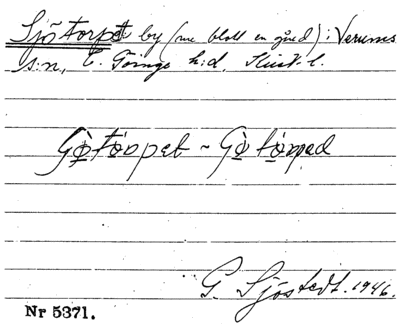 Sjötorpet by (nu blott en gård) i Verums
s:n, V. Göinge h:d. Krist. l.
Gø̀tórpet ~ Gø̀tórped
G. Sjöstedt. 1946.
Nr 5371.